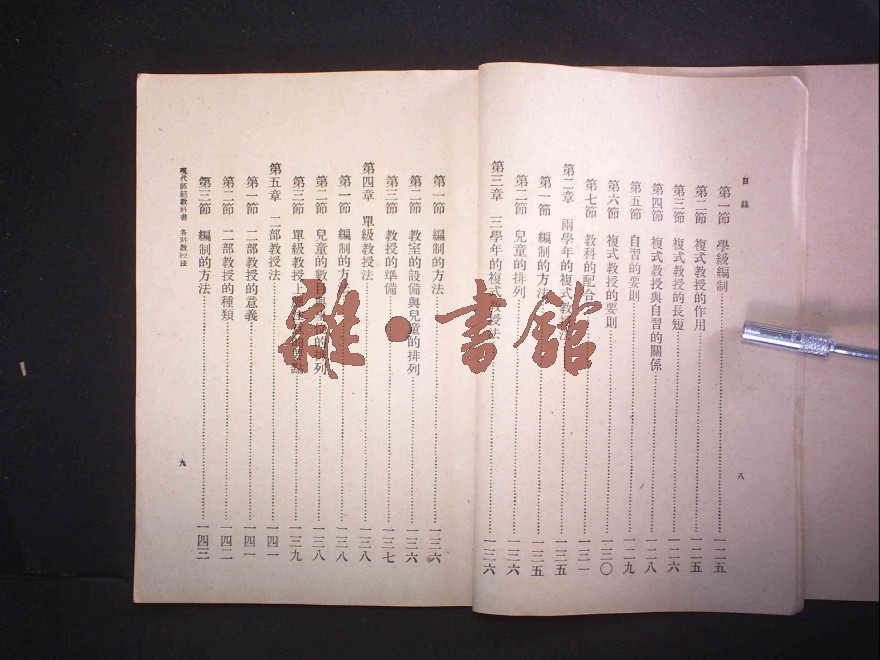 目錄
第一節 學級編制……一二五
第二節 複式教授的作用……一二五
第三節 複式教授的長短……一二六
第四節 複式教授與自習的關係……一二八
第五節 自習的要則……一二九
第六節 複式教授的要則……一三〇
第七節 教科的配合……一三一
第二章 兩學年的複式教授法……一三五
第一節 編制的方法……一三五
第二節 兒童的排列……一三六
第三章 三學年的複式教授法……一三六
八
第一節 編制的方法……一三六
第二節 教室的設備與兒童的排列……一三六
第三節 教授的準備……一三七
第四章 單級教授法……一三八
第一節 編制的方法……一三八
第二節 兒童的數目與座位的排列……一三八
第三節 單級教授上應注意的要點……一三九
第五章 二部教授法……一四一
第一節 二部教授的意義……一四一
第二節 二部教授的種類……一四二
第三節 編制的方法……一四三
現代師範教科書 各科教授法
九
雜·書館